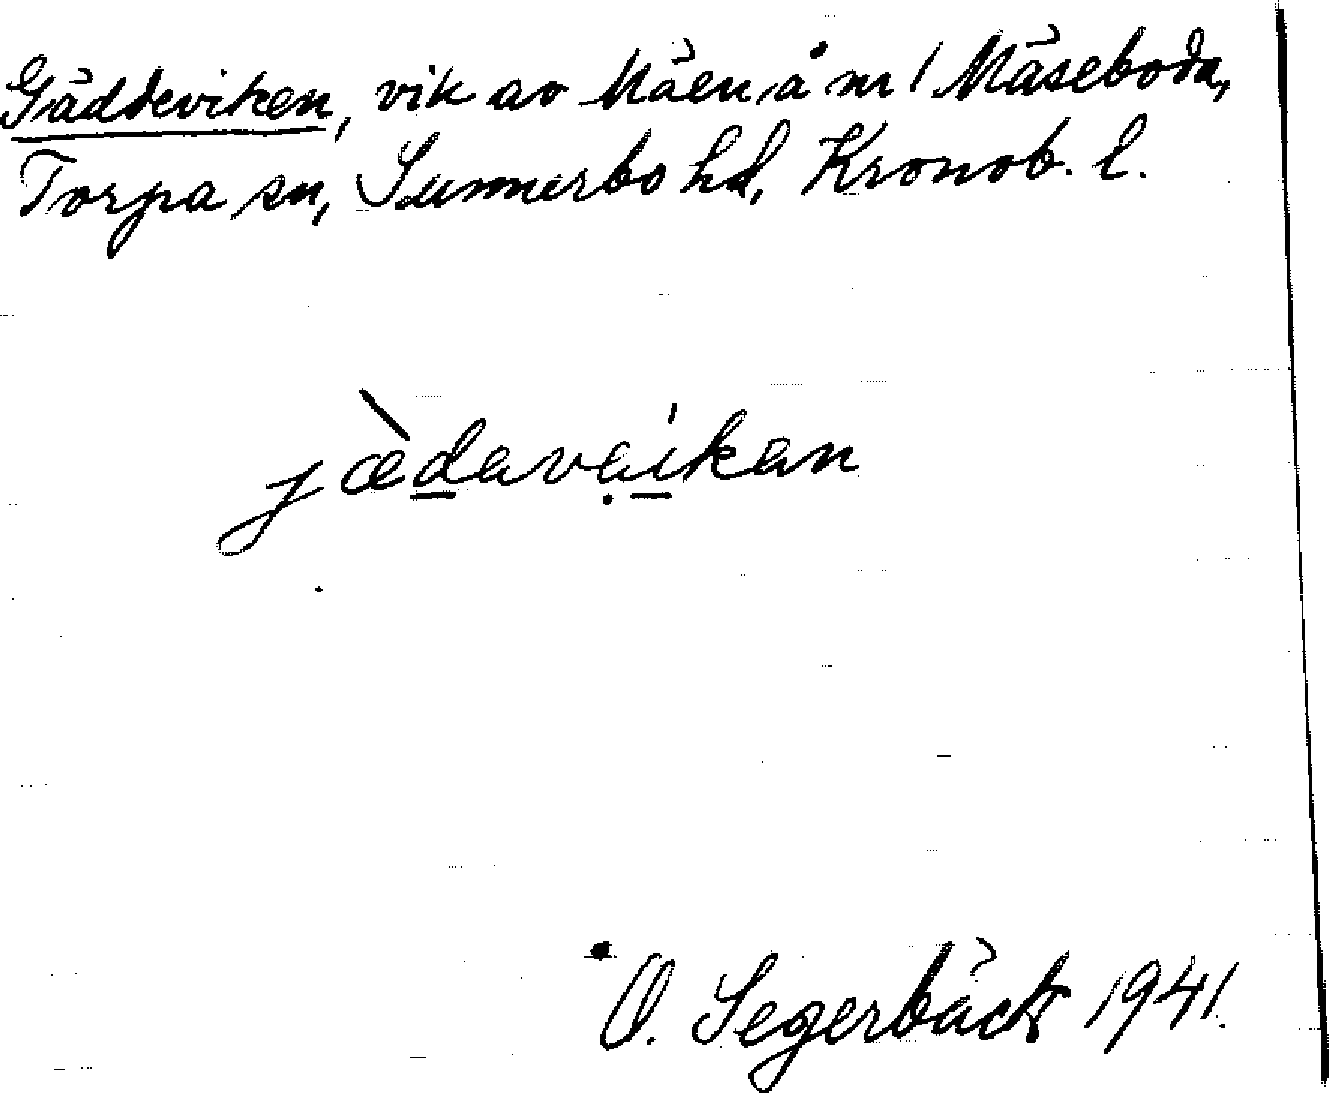 Gäddeviken, vik av Måen å nr 1 Måseboda,
Torpa sn, Sunnerbo hd, Kronob. l.
jædavaikan
O. Segerbäck 1941.